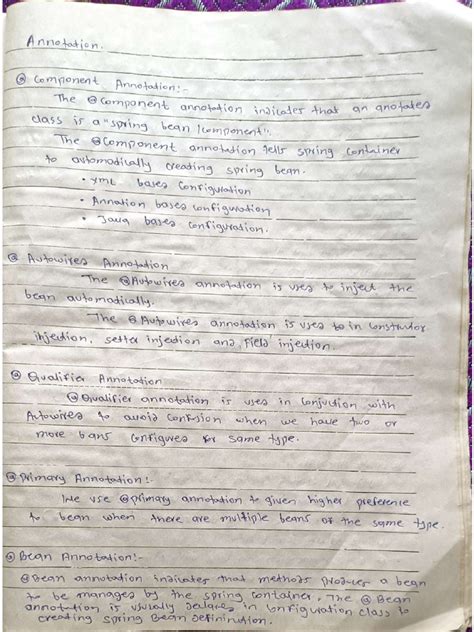 Annotation.
@ Component Annotation:-
The @component annotation indicates that an anotated
class is a "spring bean /component".
The @Component annotation tells spring container
to automatically creating spring bean.
• xml based configuration
• Annation based configuration
• Java based configuration.
@ Autowired Annotation
The @Autowired annotation is used to inject the
bean automatically.
The @Autowired annotation is used to in constructor
injection, setter injection and field injection.
@ Qualifier Annotation
@Qualifier annotation is used in conjuction with
Autowired to avoid confusion when we have two or
more bans configured for same type.
@ Primary Annotation:-
We use @primary annotation to given higher preference
to bean when there are multiple beans of the same type.
@ Bean Annotation:-
@Bean annotation indicates that methods produces a bean
to be managed by the spring container. The @Bean
annotation is usually declared in configuration class to
creating spring Bean defininution.